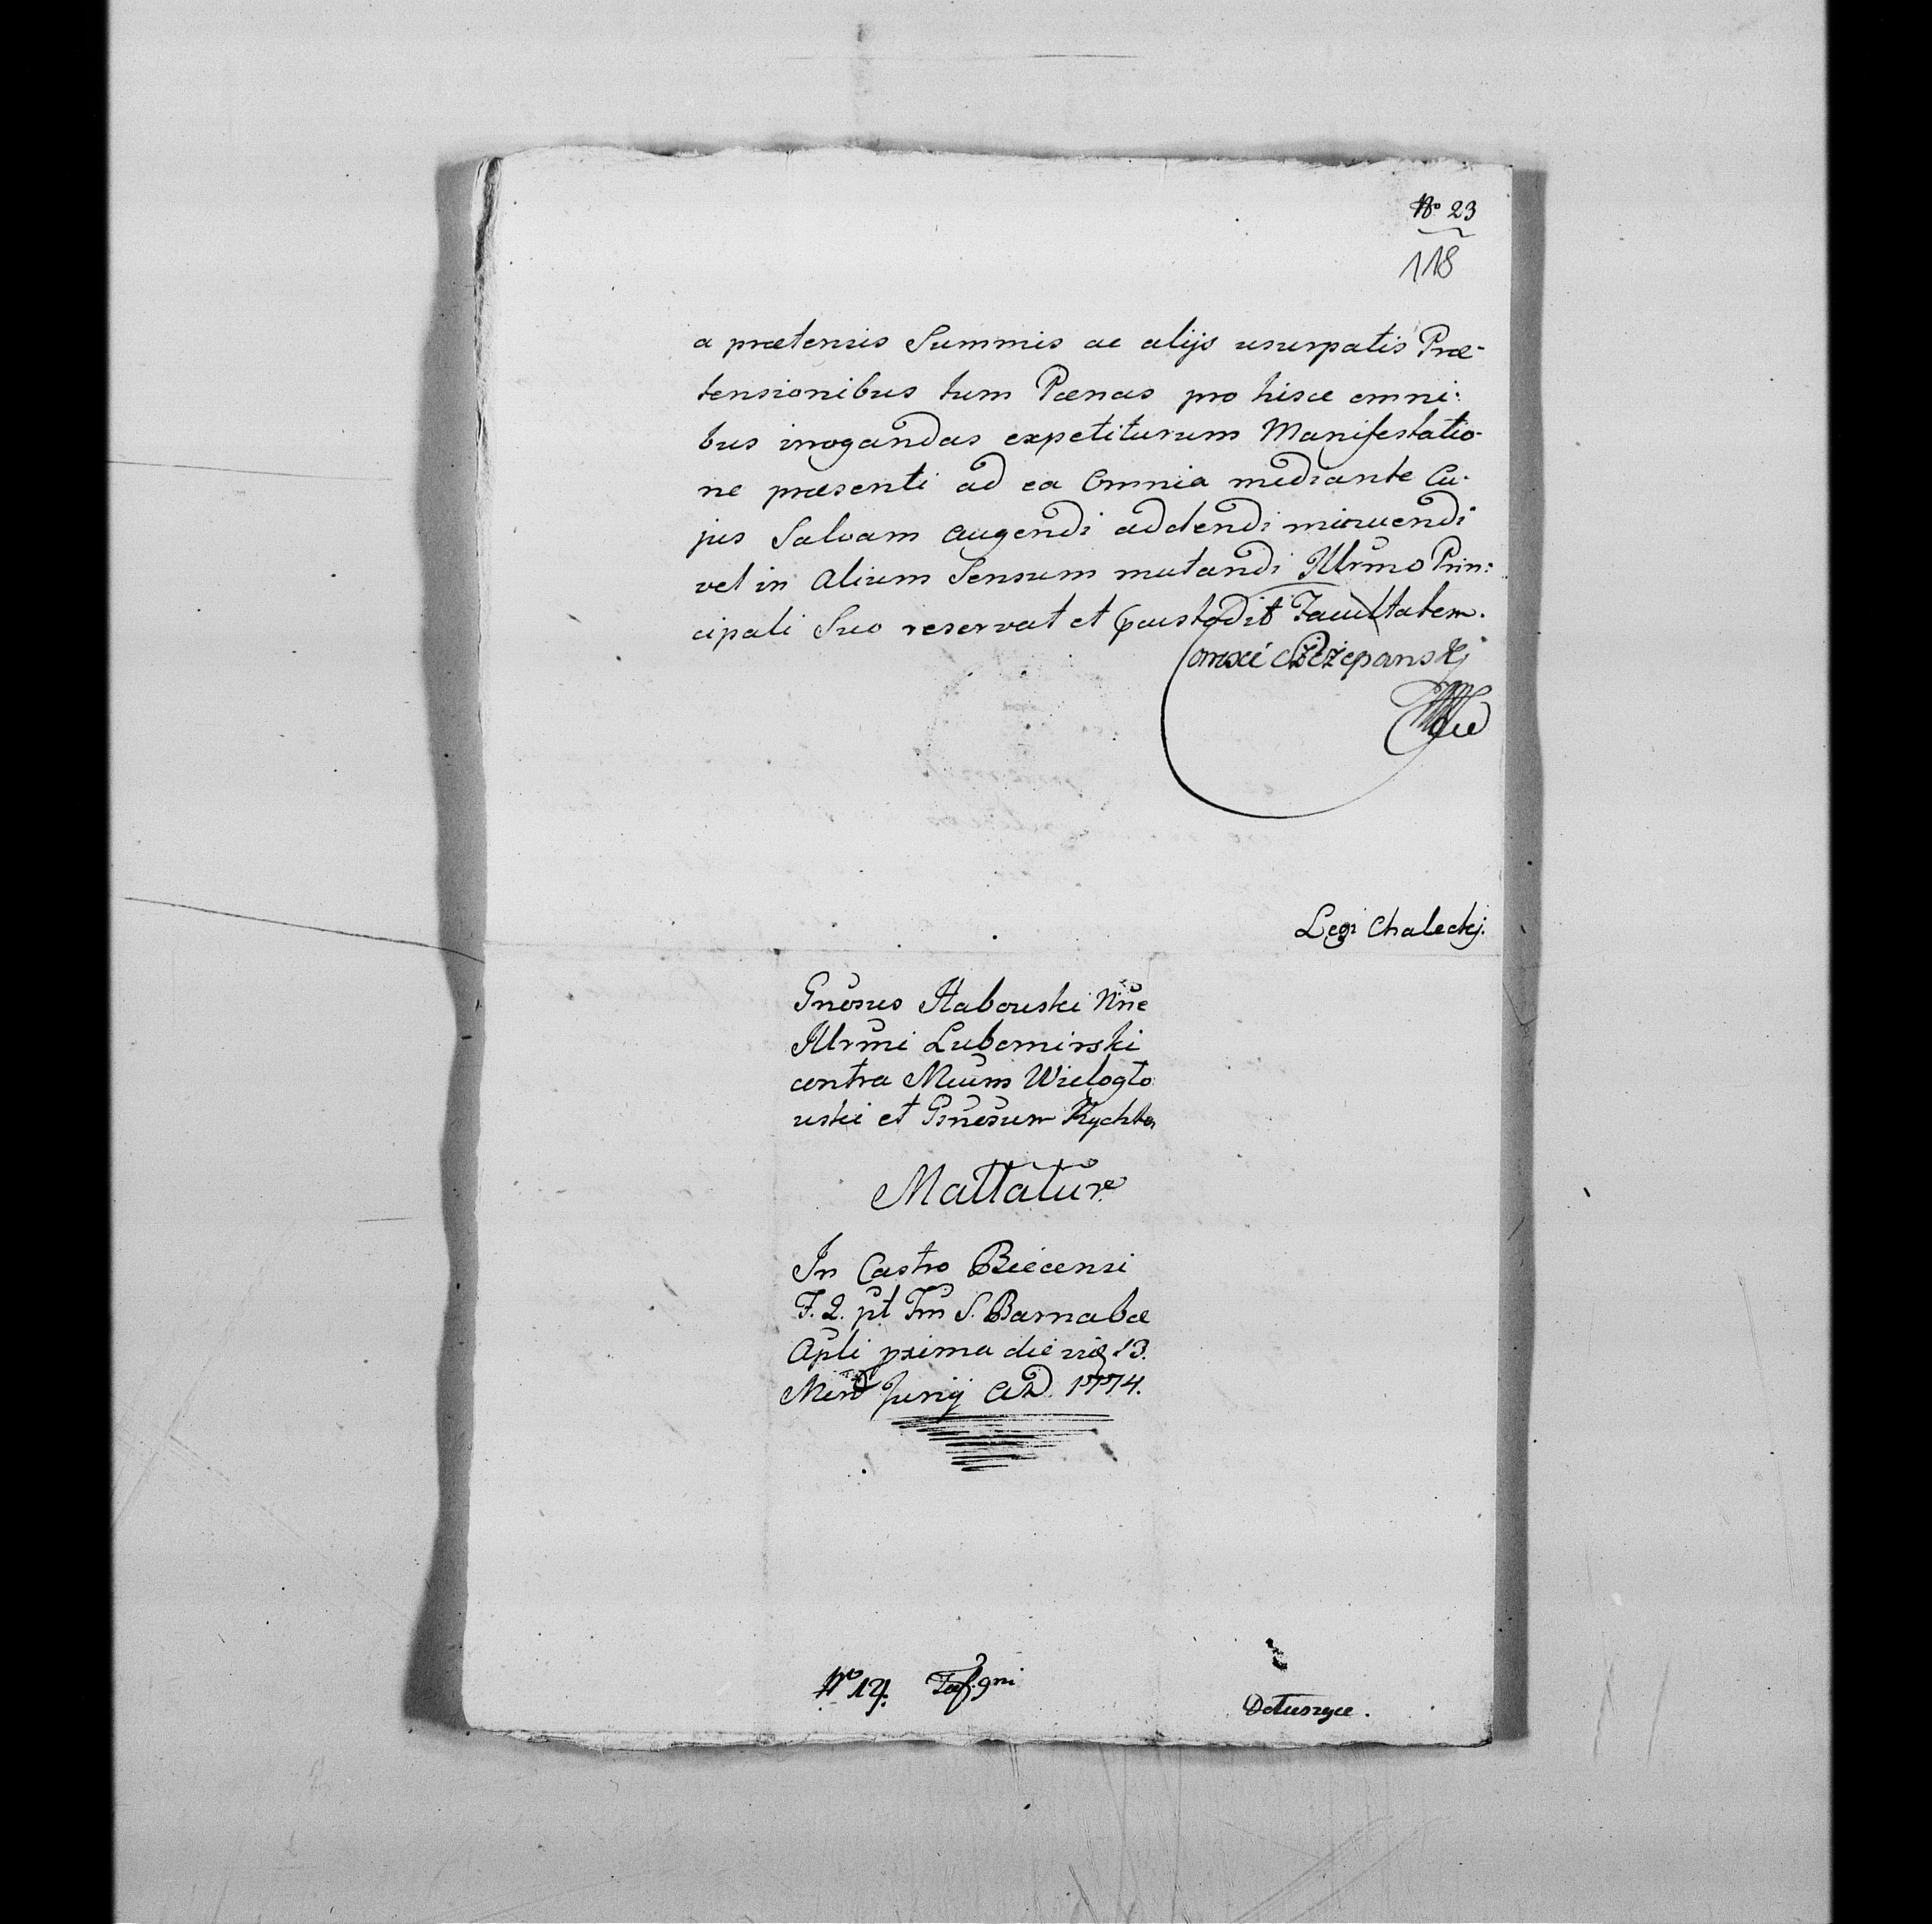 No 23
118
a prætensis Summis ac alijs usurpatis Præ-
tensionibus tum Pœnas pro hisce omni:
bus irrogandas expetiturum Manifestatio-
ne præsenti ad ea Omnia mediante Cu-
jus Salvam augendi addendi minuendi
vel in Alium Sensum mutandi Illrmo Prin:
cipali Suo reservat et custodit Facultatem.
Szczepanskj
Legi Chaleckj.
Gnosus Stabouski Nne
Illrmi Lubomirski
contra Mcum Wielogło
uski et Gnosum Rychter
In Castro Biecensi
F. 2. pt Fm S. Barnabæ
Apli prima die vig 13.
Mens Junij AD. 1774.
No 14.